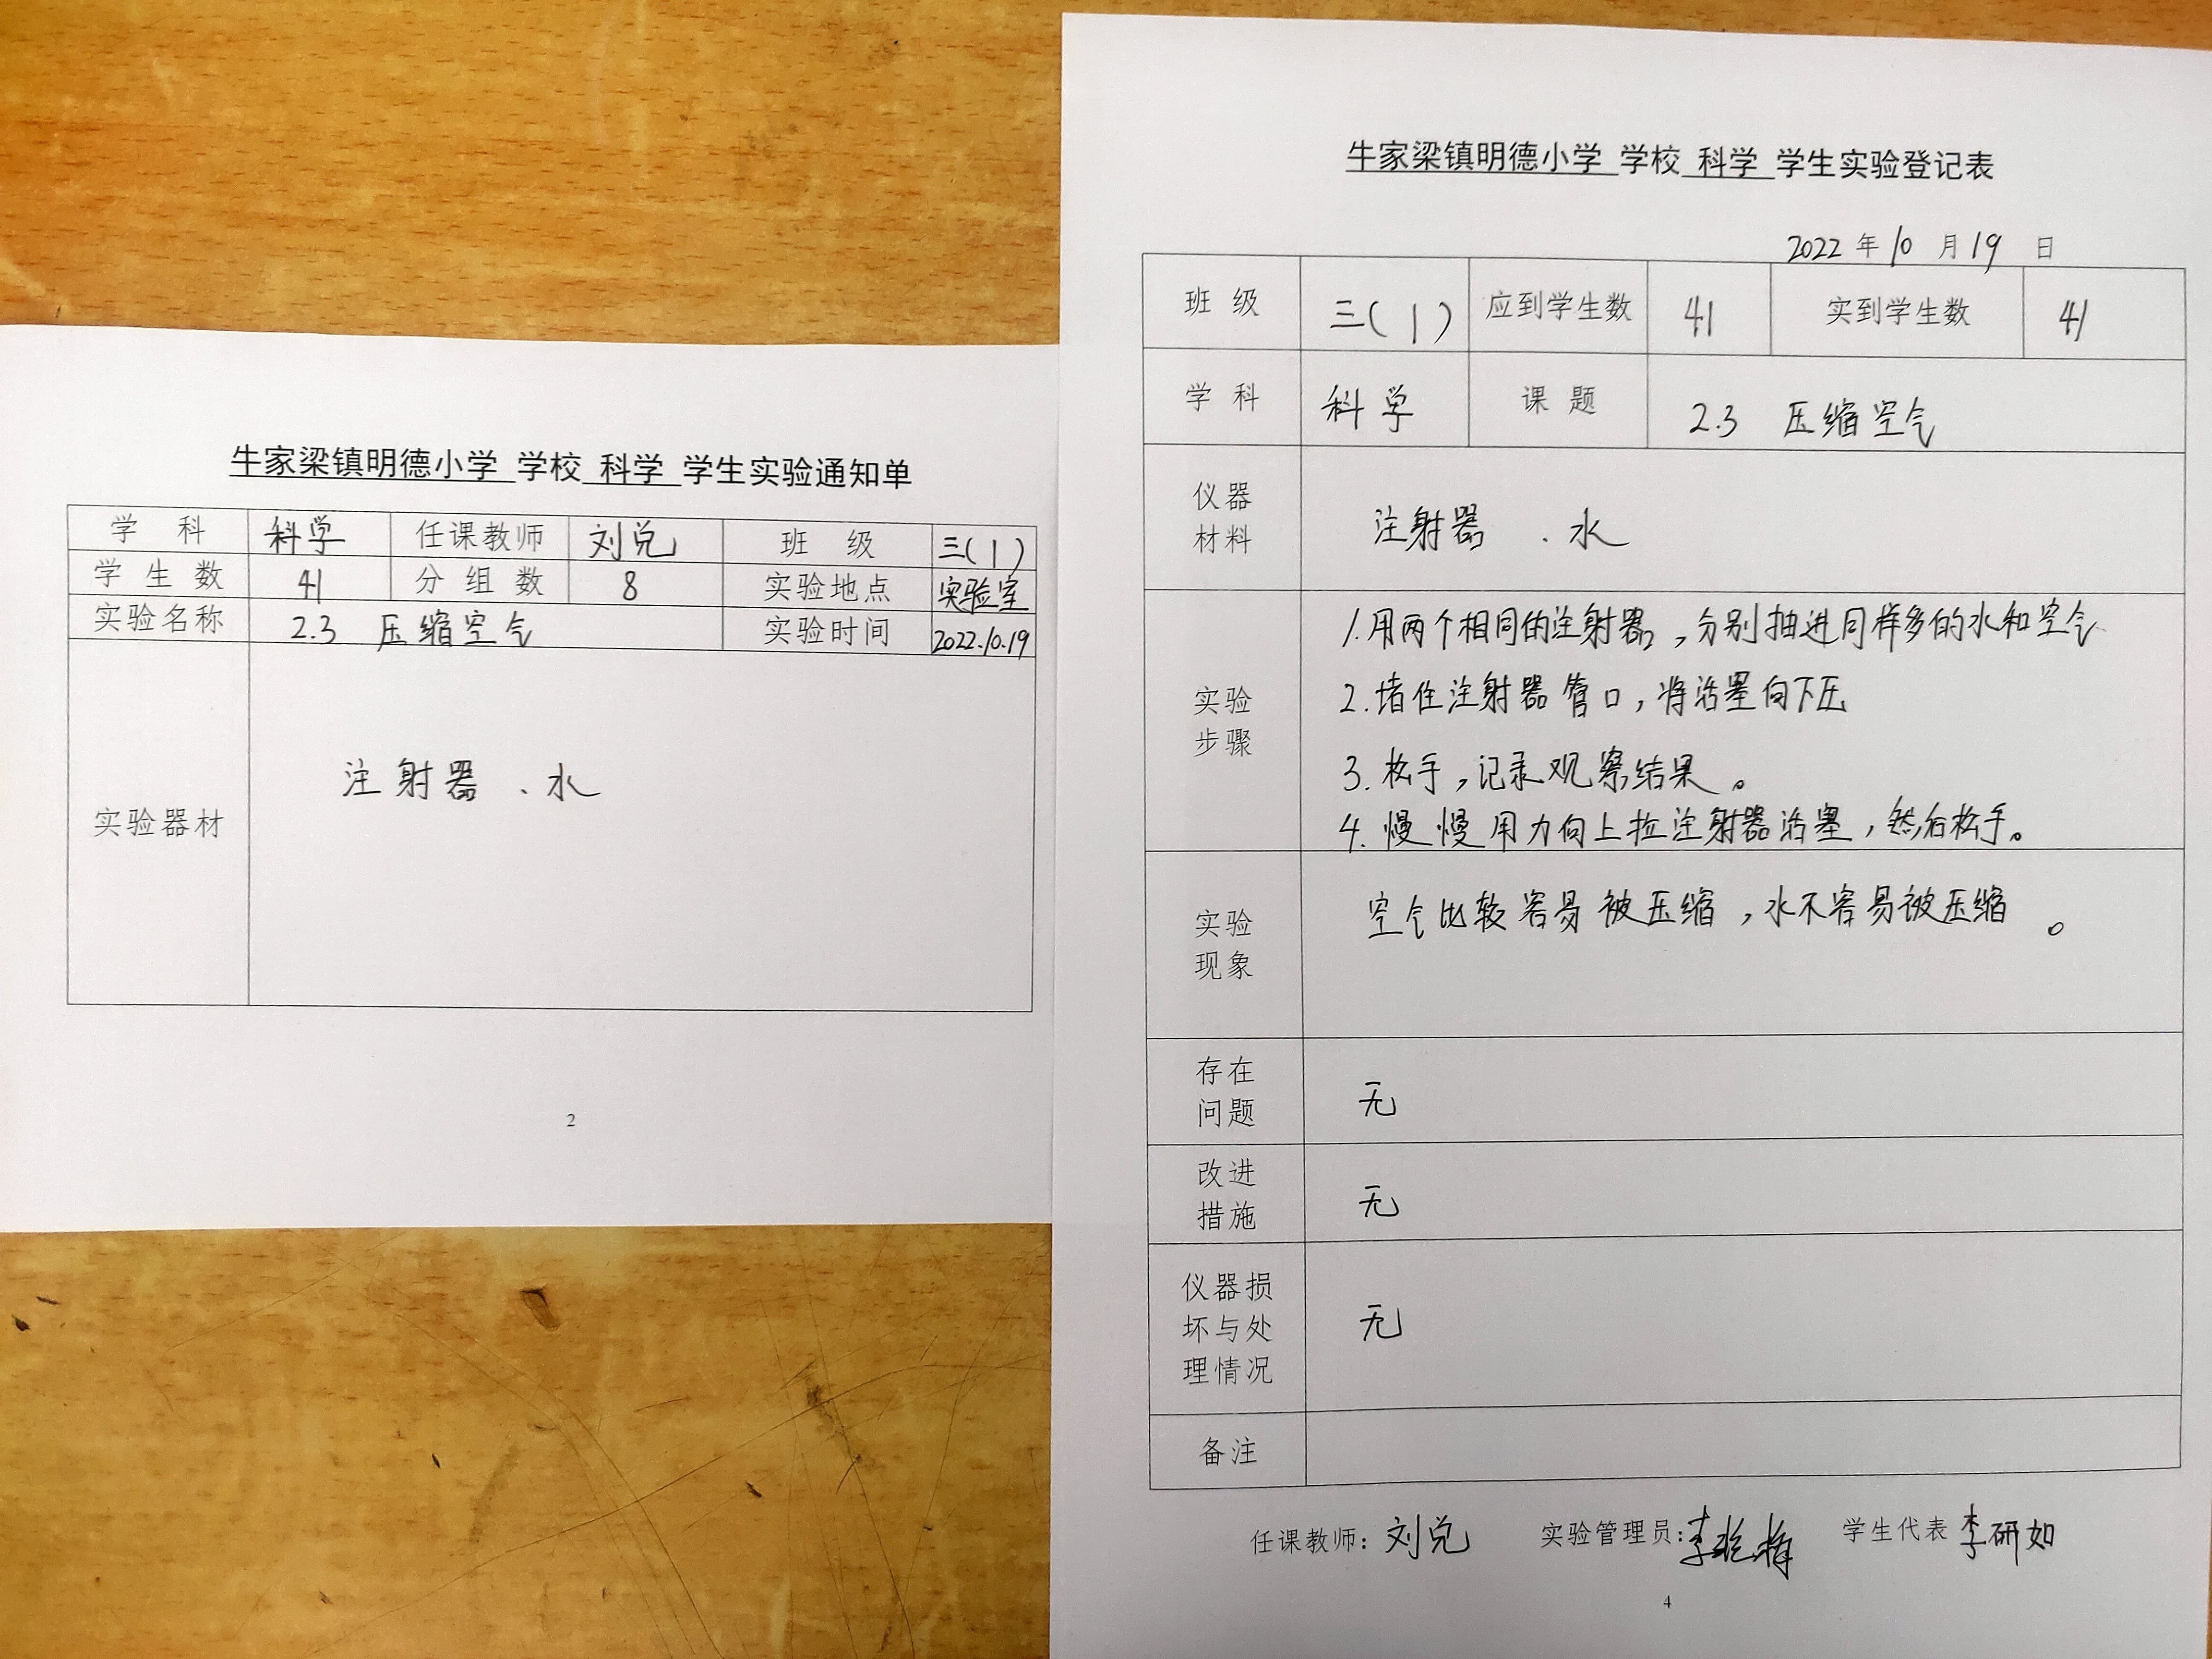 牛家梁镇明德小学 学校 科学 学生实验通知单
学 科 科学 任课教师 刘兑 班 级 三(1)
学 生 数 41 分 组 数 8 实验地点 实验室
实验名称 2.3 压缩空气 实验时间 2022.10.19
实验器材 注射器 、水
2
牛家梁镇明德小学 学校 科学 学生实验登记表
2022 年 10 月 19 日
班 级 三(1) 应到学生数 41 实到学生数 41
学 科 科学 课 题 2.3 压缩空气
仪器
材料
注射器 、水
实验
步骤
1.用两个相同的注射器,分别抽进同样多的水和空气
2.堵住注射器管口,将活塞向下压
3.松手,记录观察结果。
4.慢慢用力向上拉注射器活塞,然后松手。
实验
现象
空气比较容易被压缩,水不容易被压缩。
存在
问题
无
改进
措施
无
仪器损
坏与处
理情况
无
备注
任课教师: 刘兑 实验管理员: 李 学生代表 李研如
4